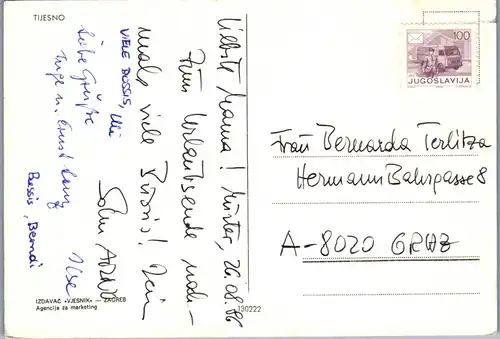 TIJESNO
Liebste Mama! Murter, 26.08.86
Zum Urlaubsende noch-
mals viele Bussis! Dein
Sohn
Ilse
VIELE BUSSIS, Uli
Liebe Grüße
Inge u. Ernst
Bussis, Berndi
IZDAVAČ «VJESNIK» — ZAGREB
Agencija za marketing
130222
100
JUGOSLAVIJA
Frau Bernarda Terlitza
Hermann Bahrgasse 8
A-8020 GRAZ